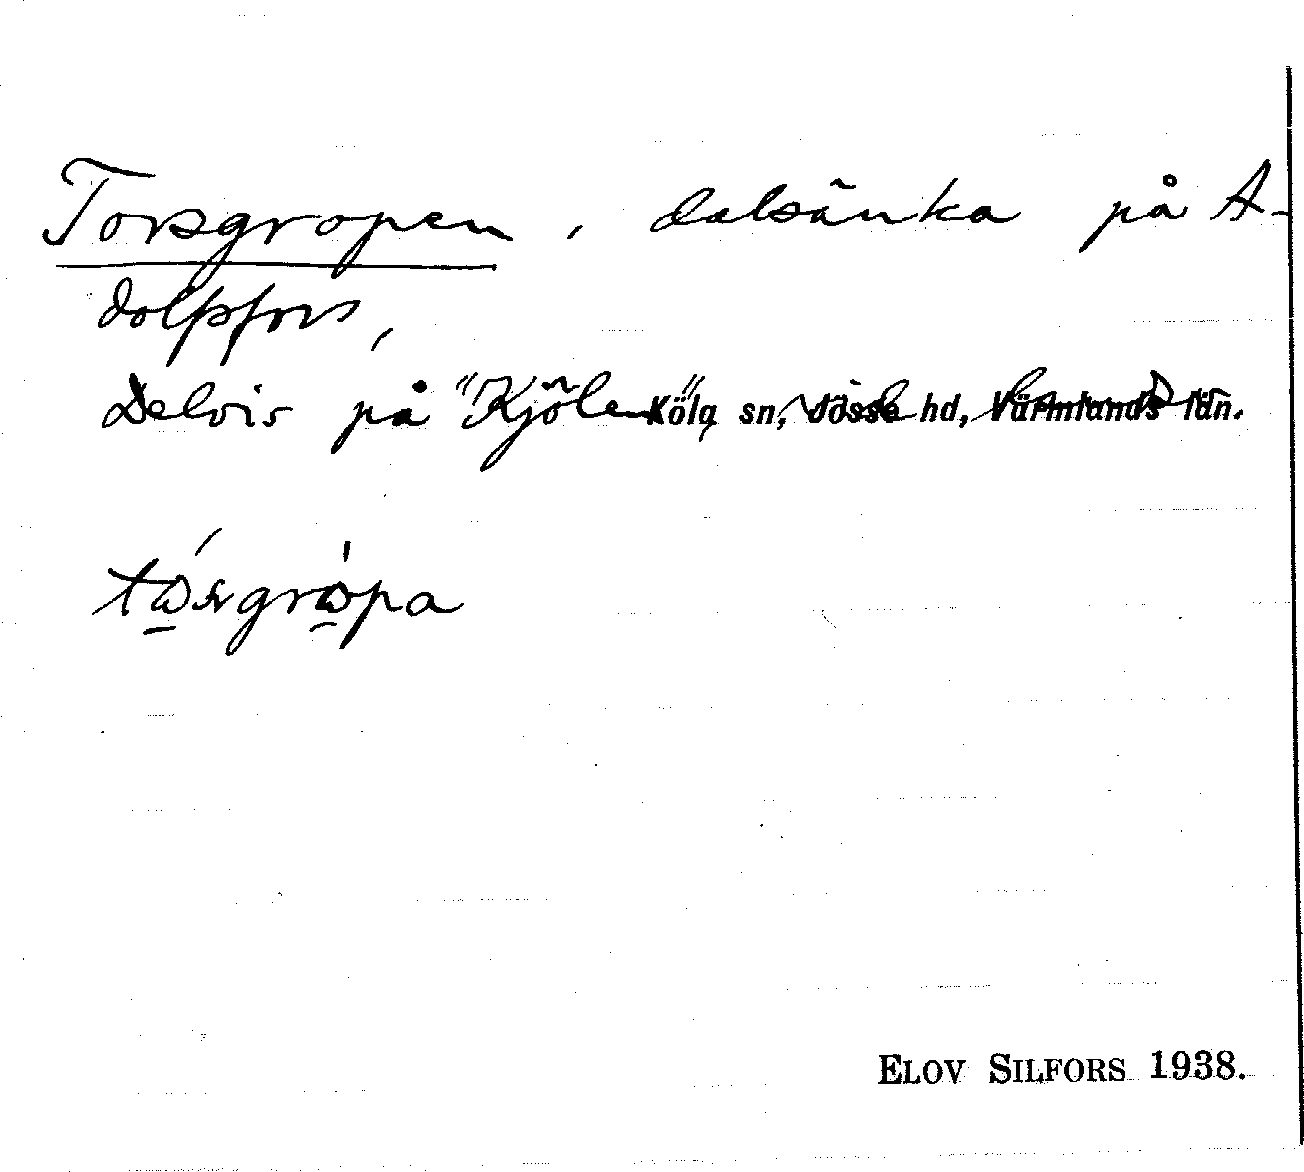 Torsgropen, dalsänka på A-
dolpfors,
Delvis på "Kjölen" Köla sn, Jösse hd, Värmlands län.
tɷ́rsgrɷ̀pa
ELOV SILFORS 1938.